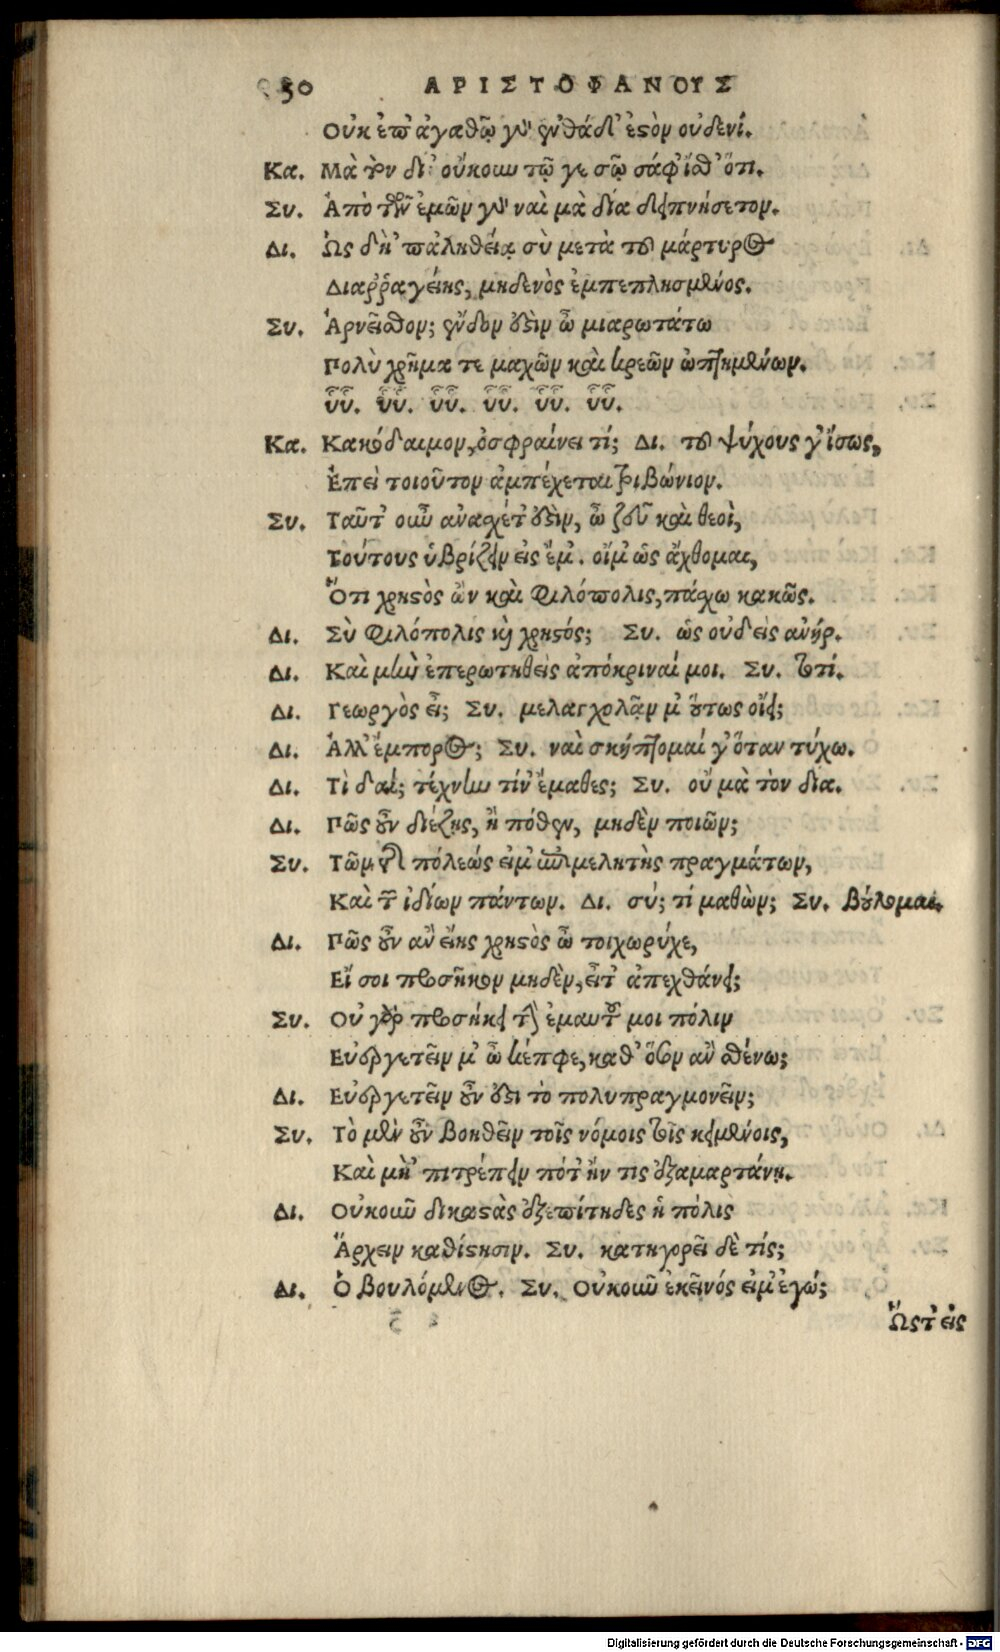 50 ΑΡΙΣΤΟΦΑΝΟΥΣ
Οὐκ ἐπ' ἀγαθῷ γὰρ ἐνθάδ' ἐστὸν οὐδενί.
Κα. Μὰ τὸν δί' οὔκουν τῷ γε σῷ σάφ' ἴσθ' ὅτι.
Συ. Ἀπὸ τῶν ἐμῶν γὰρ ναὶ μὰ δία δειπνήσετον.
Δι. Ὡς δὴ 'π' ἀληθείᾳ σὺ μετὰ τοῦ μάρτυρος
Διαῤῥαγείης, μηδενὸς ἐμπεπλησμένος.
Συ. Ἀρνεῖσθον; ἔνδον ἐστὶν ὦ μιαρωτάτω
Πολὺ χρῆμα τεμαχῶν καὶ κρεῶν ὠπτημένων.
ὗὗ. ὗὗ. ὗὗ. ὗὗ. ὗὗ. ὗὗ.
Κα. Κακόδαιμον, ὀσφραίνει τί; Δι. τοῦ ψύχους γ' ἴσως,
Ἐπεὶ τοιοῦτον ἀμπέχεται τριβώνιον.
Συ. Ταῦτ' οὖν ἀνασχέτ' ἐστὶν, ὦ ζεῦ καὶ θεοὶ,
Τούτους ὑβρίζειν εἰς ἔμ'. οἴμ' ὡς ἄχθομαι,
Ὅτι χρηστὸς ὢν καὶ φιλόπολις, πάσχω κακῶς.
Δι. Σὺ φιλόπολις καὶ χρηστός; Συ. ὡς οὐδεὶς ἀνήρ.
Δι. Καὶ μὴν ἐπερωτηθεὶς ἀπόκριναί μοι. Συ. τὸ τί.
Δι. Γεωργὸς εἶ; Συ. μελαγχολᾷν μ' οὕτως οἴει;
Δι. Ἀλλ' ἔμπορος; Συ. ναὶ σκήπτομαί γ' ὅταν τύχω.
Δι. Τὶ δαί; τέχνην τίν' ἔμαθες; Συ. οὔ μὰ τὸν δία.
Δι. Πῶς οὖν διέζης, ἢ πόθεν, μηδὲν ποιῶν;
Συ. Τῶν τῆς πόλεώς εἰμ' ἐπιμελητὴς πραγμάτων,
Καὶ τῶν ἰδίων πάντων. Δι. σύ; τί μαθὼν; Συ. βούλομαι.
Δι. Πῶς οὖν ἂν εἴης χρηστὸς ὦ τοιχωρύχε,
Εἴ σοι προσῆκον μηδὲν, εἶτ' ἀπεχθάνει;
Συ. Οὐ γὰρ προσήκει τὴν ἐμαυτοῦ μοι πόλιν
Εὐεργετεῖν μ' ὦ κέπφε, καθ' ὅσον ἂν σθένω;
Δι. Εὐεργετεῖν οὖν ἐστι τὸ πολυπραγμονεῖν;
Συ. Τὸ μὲν οὖν βοηθεῖν τοῖς νόμοις τοῖς κειμένοις,
Καὶ μὴ 'πιτρέπειν πότ' ἤν τις ἐξαμαρτάνῃ.
Δι. Οὐκοῦν δικαστὰς ἐξεπίτηδες ἡ πόλις
Ἄρχειν καθίστησιν. Συ. κατηγορεῖ δὲ τίς;
Δι. Ὁ βουλόμενος. Συ. Οὐκοῦν ἐκεῖνός εἰμ' ἐγώ;
Ὥστ' εἰς
Digitalisierung gefördert durch die Deutsche Forschungsgemeinschaft - DFG